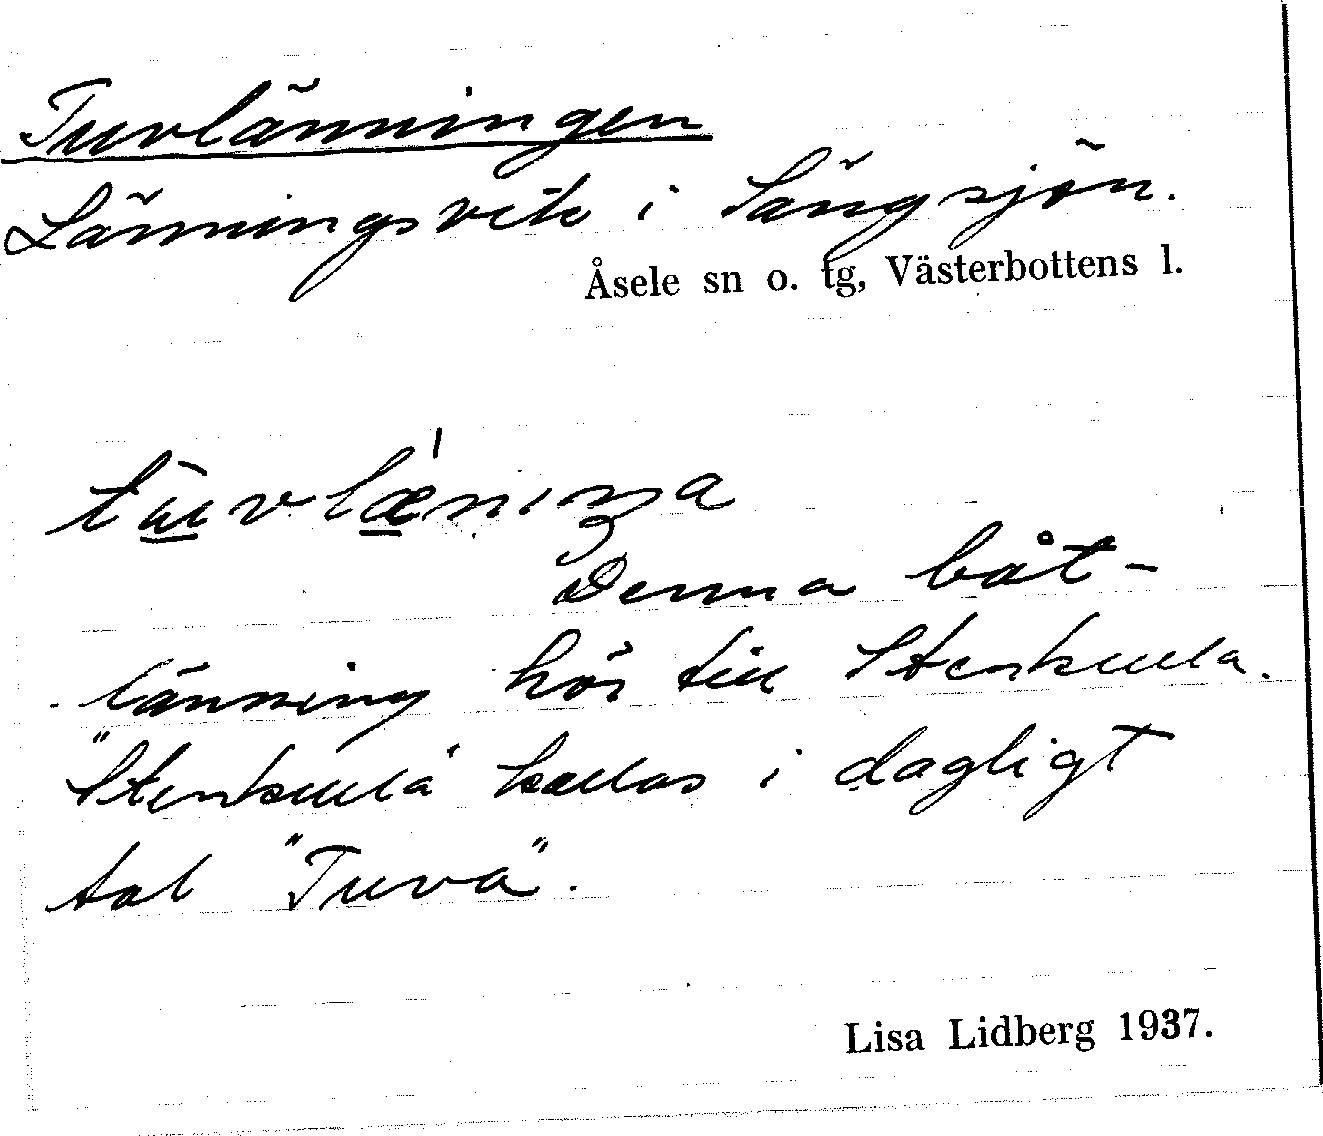 Tuvlänningen
Länningsvik i Sängsjön.
Åsele sn o. tg, Västerbottens l.
Denna båt-
länning hör till Stenkulla.
"Stenkulla" kallas i dagligt
tal "Tuva".
Lisa Lidberg 1937.